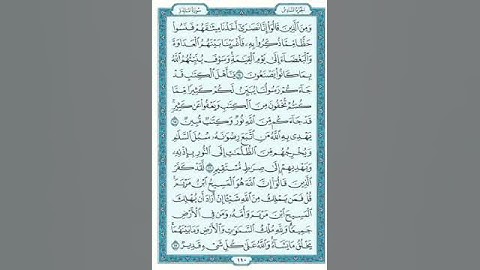 الجزء السادس
سورة المائدة
وَمِنَ ٱلَّذِينَ قَالُوٓا۟ إِنَّا نَصَـٰرَىٰٓ أَخَذْنَا مِيثَـٰقَهُمْ فَنَسُوا۟
حَظًّا مِّمَّا ذُكِّرُوا۟ بِهِۦ فَأَغْرَيْنَا بَيْنَهُمُ ٱلْعَدَاوَةَ
وَٱلْبَغْضَآءَ إِلَىٰ يَوْمِ ٱلْقِيَـٰمَةِ وَسَوْفَ يُنَبِّئُهُمُ ٱللَّهُ
بِمَا كَانُوا۟ يَصْنَعُونَ ١٤ يَـٰٓأَهْلَ ٱلْكِتَـٰبِ قَدْ
جَآءَكُمْ رَسُولُنَا يُبَيِّنُ لَكُمْ كَثِيرًا مِّمَّا
كُنتُمْ تُخْفُونَ مِنَ ٱلْكِتَـٰبِ وَيَعْفُوا۟ عَن كَثِيرٍ
قَدْ جَآءَكُم مِّنَ ٱللَّهِ نُورٌ وَكِتَـٰبٌ مُّبِينٌ ١٥
يَهْدِى بِهِ ٱللَّهُ مَنِ ٱتَّبَعَ رِضْوَٰنَهُۥ سُبُلَ ٱلسَّلَـٰمِ
وَيُخْرِجُهُم مِّنَ ٱلظُّلُمَـٰتِ إِلَى ٱلنُّورِ بِإِذْنِهِۦ
وَيَهْدِيهِمْ إِلَىٰ صِرَٰطٍ مُّسْتَقِيمٍ ١٦ لَّقَدْ كَفَرَ
ٱلَّذِينَ قَالُوٓا۟ إِنَّ ٱللَّهَ هُوَ ٱلْمَسِيحُ ٱبْنُ مَرْيَمَ
قُلْ فَمَن يَمْلِكُ مِنَ ٱللَّهِ شَيْـًٔا إِنْ أَرَادَ أَن يُهْلِكَ
ٱلْمَسِيحَ ٱبْنَ مَرْيَمَ وَأُمَّهُۥ وَمَن فِى ٱلْأَرْضِ
جَمِيعًا وَلِلَّهِ مُلْكُ ٱلسَّمَـٰوَٰتِ وَٱلْأَرْضِ وَمَا بَيْنَهُمَا
يَخْلُقُ مَا يَشَآءُ وَٱللَّهُ عَلَىٰ كُلِّ شَىْءٍ قَدِيرٌ ١٧
١١٠